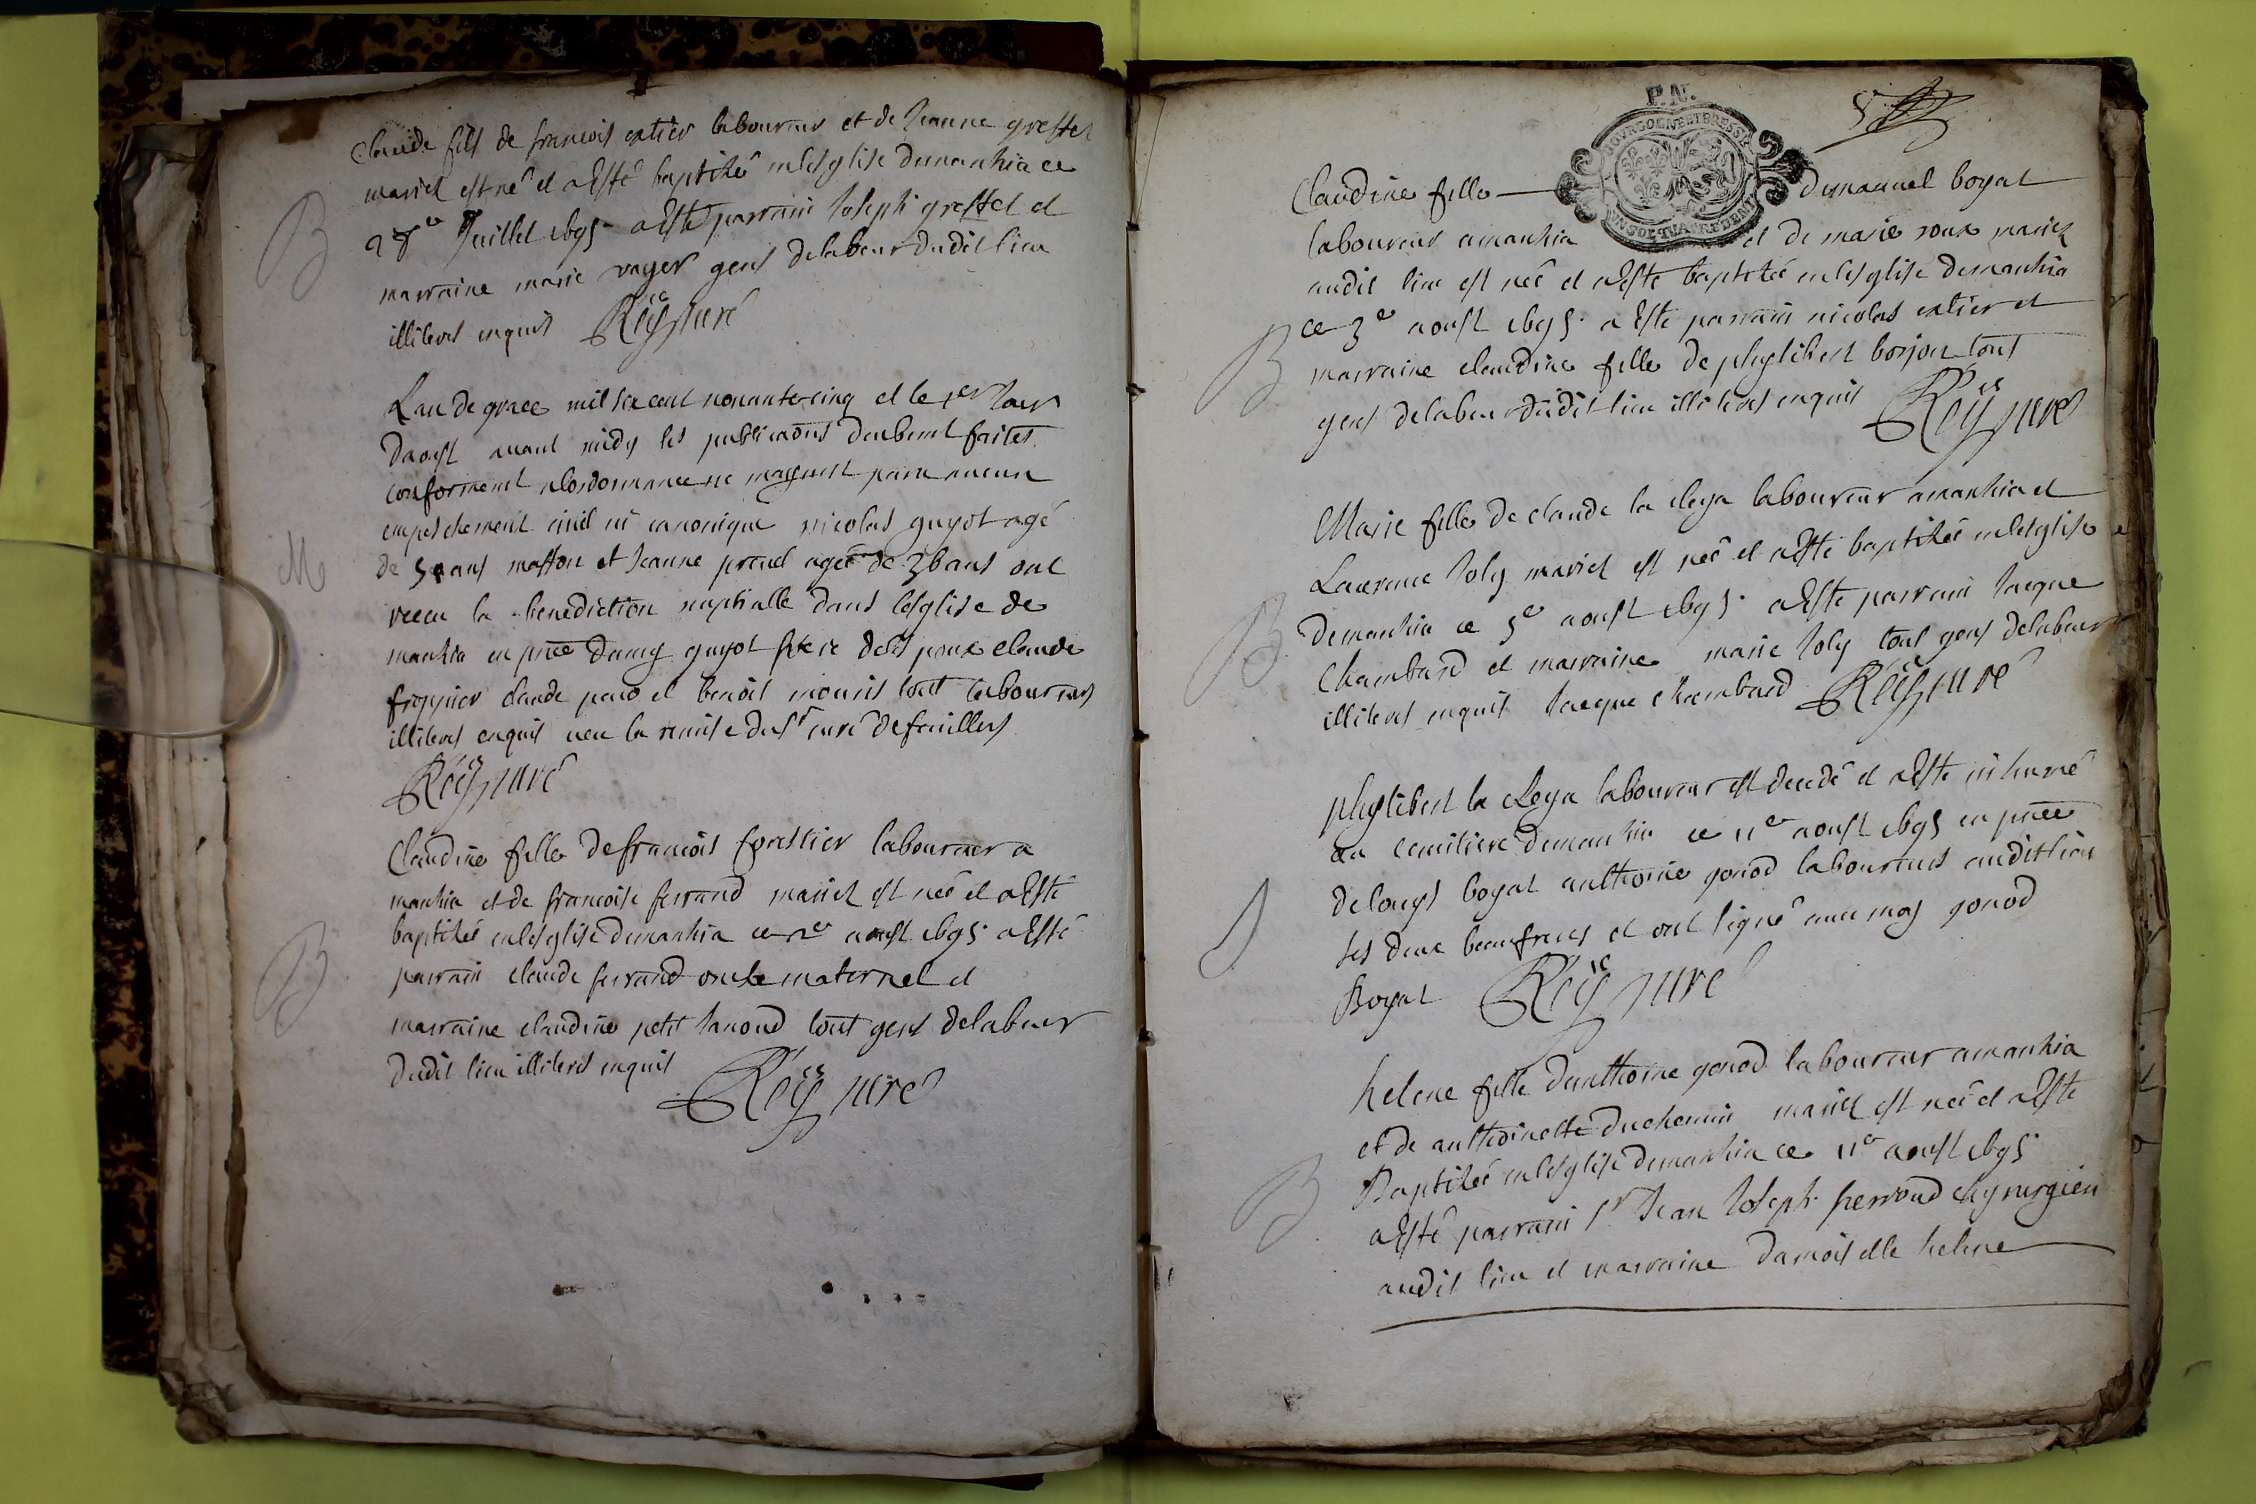 Claude fils de francois catier laboureur et de Jeanne greffet
mariez est né et a Esté baptisé en lesglise demanzia ce
28e Juillet 1695 a Esté parrain Joseph greffet et
marraine marie vuyer gens delabeur dudit lieu
illiteres enquis Réÿ curé
Lan de grace mil six cent nonante cinq et le 1er Jour
daoust avant midy les publicaons deubemt faites
conformemt alordonnance ne mayant paru aucun
empeschement civil ni canonique nicolas guyot agé
de ans masson et Jeanne agée de 36 ans ont
receu la benediction nuptialle dans lesglise de
manzia en pnce guyot frere claude
claude et benoit tout laboureurs
illiteres enquis veu la remise du sr curé de feuillens
Réÿ curé
Claudine fille de francois forestier laboureur a
manzia et de francoise ferrand mariez est née et a Esté
baptisée en lesglise demanzia ce 2e aoust 1695 a Esté
parrain claude ferrand oncle maternel et
marraine claudine petit Janond tout gens delabeur
dudit lieu illiteres enquis Réÿ curé
P.N.
BOVRGOGNE ET BRESSE
5
Claudine fille demanuel boyat
laboureur amanzia et de marie roux mariez
audit lieu est née et a Esté baptisée en lesglise demanzia
ce 3e aoust 1695 a Esté parrain nicolas catier et
marraine claudine fille de phylibert borjon tout
gens delabeur dudit lieu illiteres enquis Réÿ curé
Marie fille de claude la cloya laboureur amanzia et
Laurence Joly mariez est née et a Esté baptisée en lesglise
demanzia ce 5e aoust 1695 a Esté parrain Jacque
Chambard et marraine marie Joly tout gens delabeur
illiteres enquis Jacque Chambard Réÿ curé
phylibert la cloya laboureur est decedé et a Esté inhumé
au cemitiere demanzia ce 11e aoust 1695 en pnce
delouys boyat anthoine gonod laboureurs audit lieu
ses deux beaufreres et ont signé avec moy gonod
Boyat Réÿ curé
helene fille danthoine gonod laboureur amanzia
et de anthoinette duchemin mariez est née et a Esté
Baptisée en lesglise demanzia ce 11e aoust 1695
a Esté parrain sr Jean Joseph perroud chyrurgien
audit lieu et marraine damoiselle helene